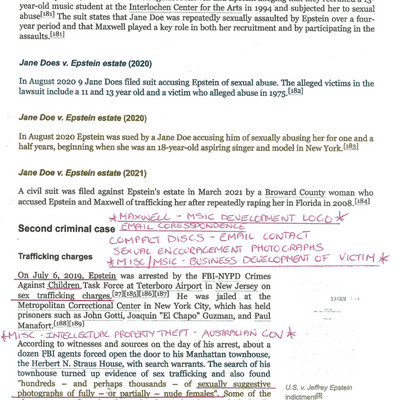 year-old music student at the Interlochen Center for the Arts in 1994 and subjected her to sexual
abuse[181] The suit states that Jane Doe was repeatedly sexually assaulted by Epstein over a four-
year period and that Maxwell played a key role in both her recruitment and by participating in the
assaults.[181]
Jane Does v. Epstein estate (2020)
In August 2020 9 Jane Does filed suit accusing Epstein of sexual abuse. The alleged victims in the
lawsuit include a 11 and 13 year old and a victim who alleged abuse in 1975.[182]
Jane Doe v. Epstein estate (2020)
In August 2020 Epstein was sued by a Jane Doe accusing him of sexually abusing her for one and a
half years, beginning when she was an 18-year-old aspiring singer and model in New York.[183]
Jane Doe v. Epstein estate (2021)
A civil suit was filed against Epstein's estate in March 2021 by a Broward County woman who
accused Epstein and Maxwell of trafficking her after repeatedly raping her in Florida in 2008.[184]
*MAXWELL - MSIC DEVELOPMENT LOGO *
Second criminal case EMAIL CORESSPONDENCE
COMPACT DISCS - EMAIL CONTACT
SEXUAL ENCOURAGEMENT PHOTOGRAPHS
Trafficking charges *MISC/MSIC - BUSINESS DEVELOPMENT OF VICTIM *
On July 6, 2019, Epstein was arrested by the FBI-NYPD Crimes
Against Children Task Force at Teterboro Airport in New Jersey on
sex trafficking charges.[27][185][186][187] He was jailed at the
Metropolitan Correctional Center in New York City, which has held
prisoners such as John Gotti, Joaquin "El Chapo" Guzman, and Paul
Manafort.[188][189]
*MISC - INTELLECTUAL PROPERTY THEFT - AUSTRALIAN *
According to witnesses and sources on the day of his arrest, about a
dozen FBI agents forced open the door to his Manhattan townhouse,
the Herbert N. Straus House, with search warrants. The search of his
townhouse turned up evidence of sex trafficking and also found
"hundreds – and perhaps thousands – of sexually suggestive
photographs of fully – or partially – nude females". Some of the
U.S. v. Jeffrey Epstein
indictment